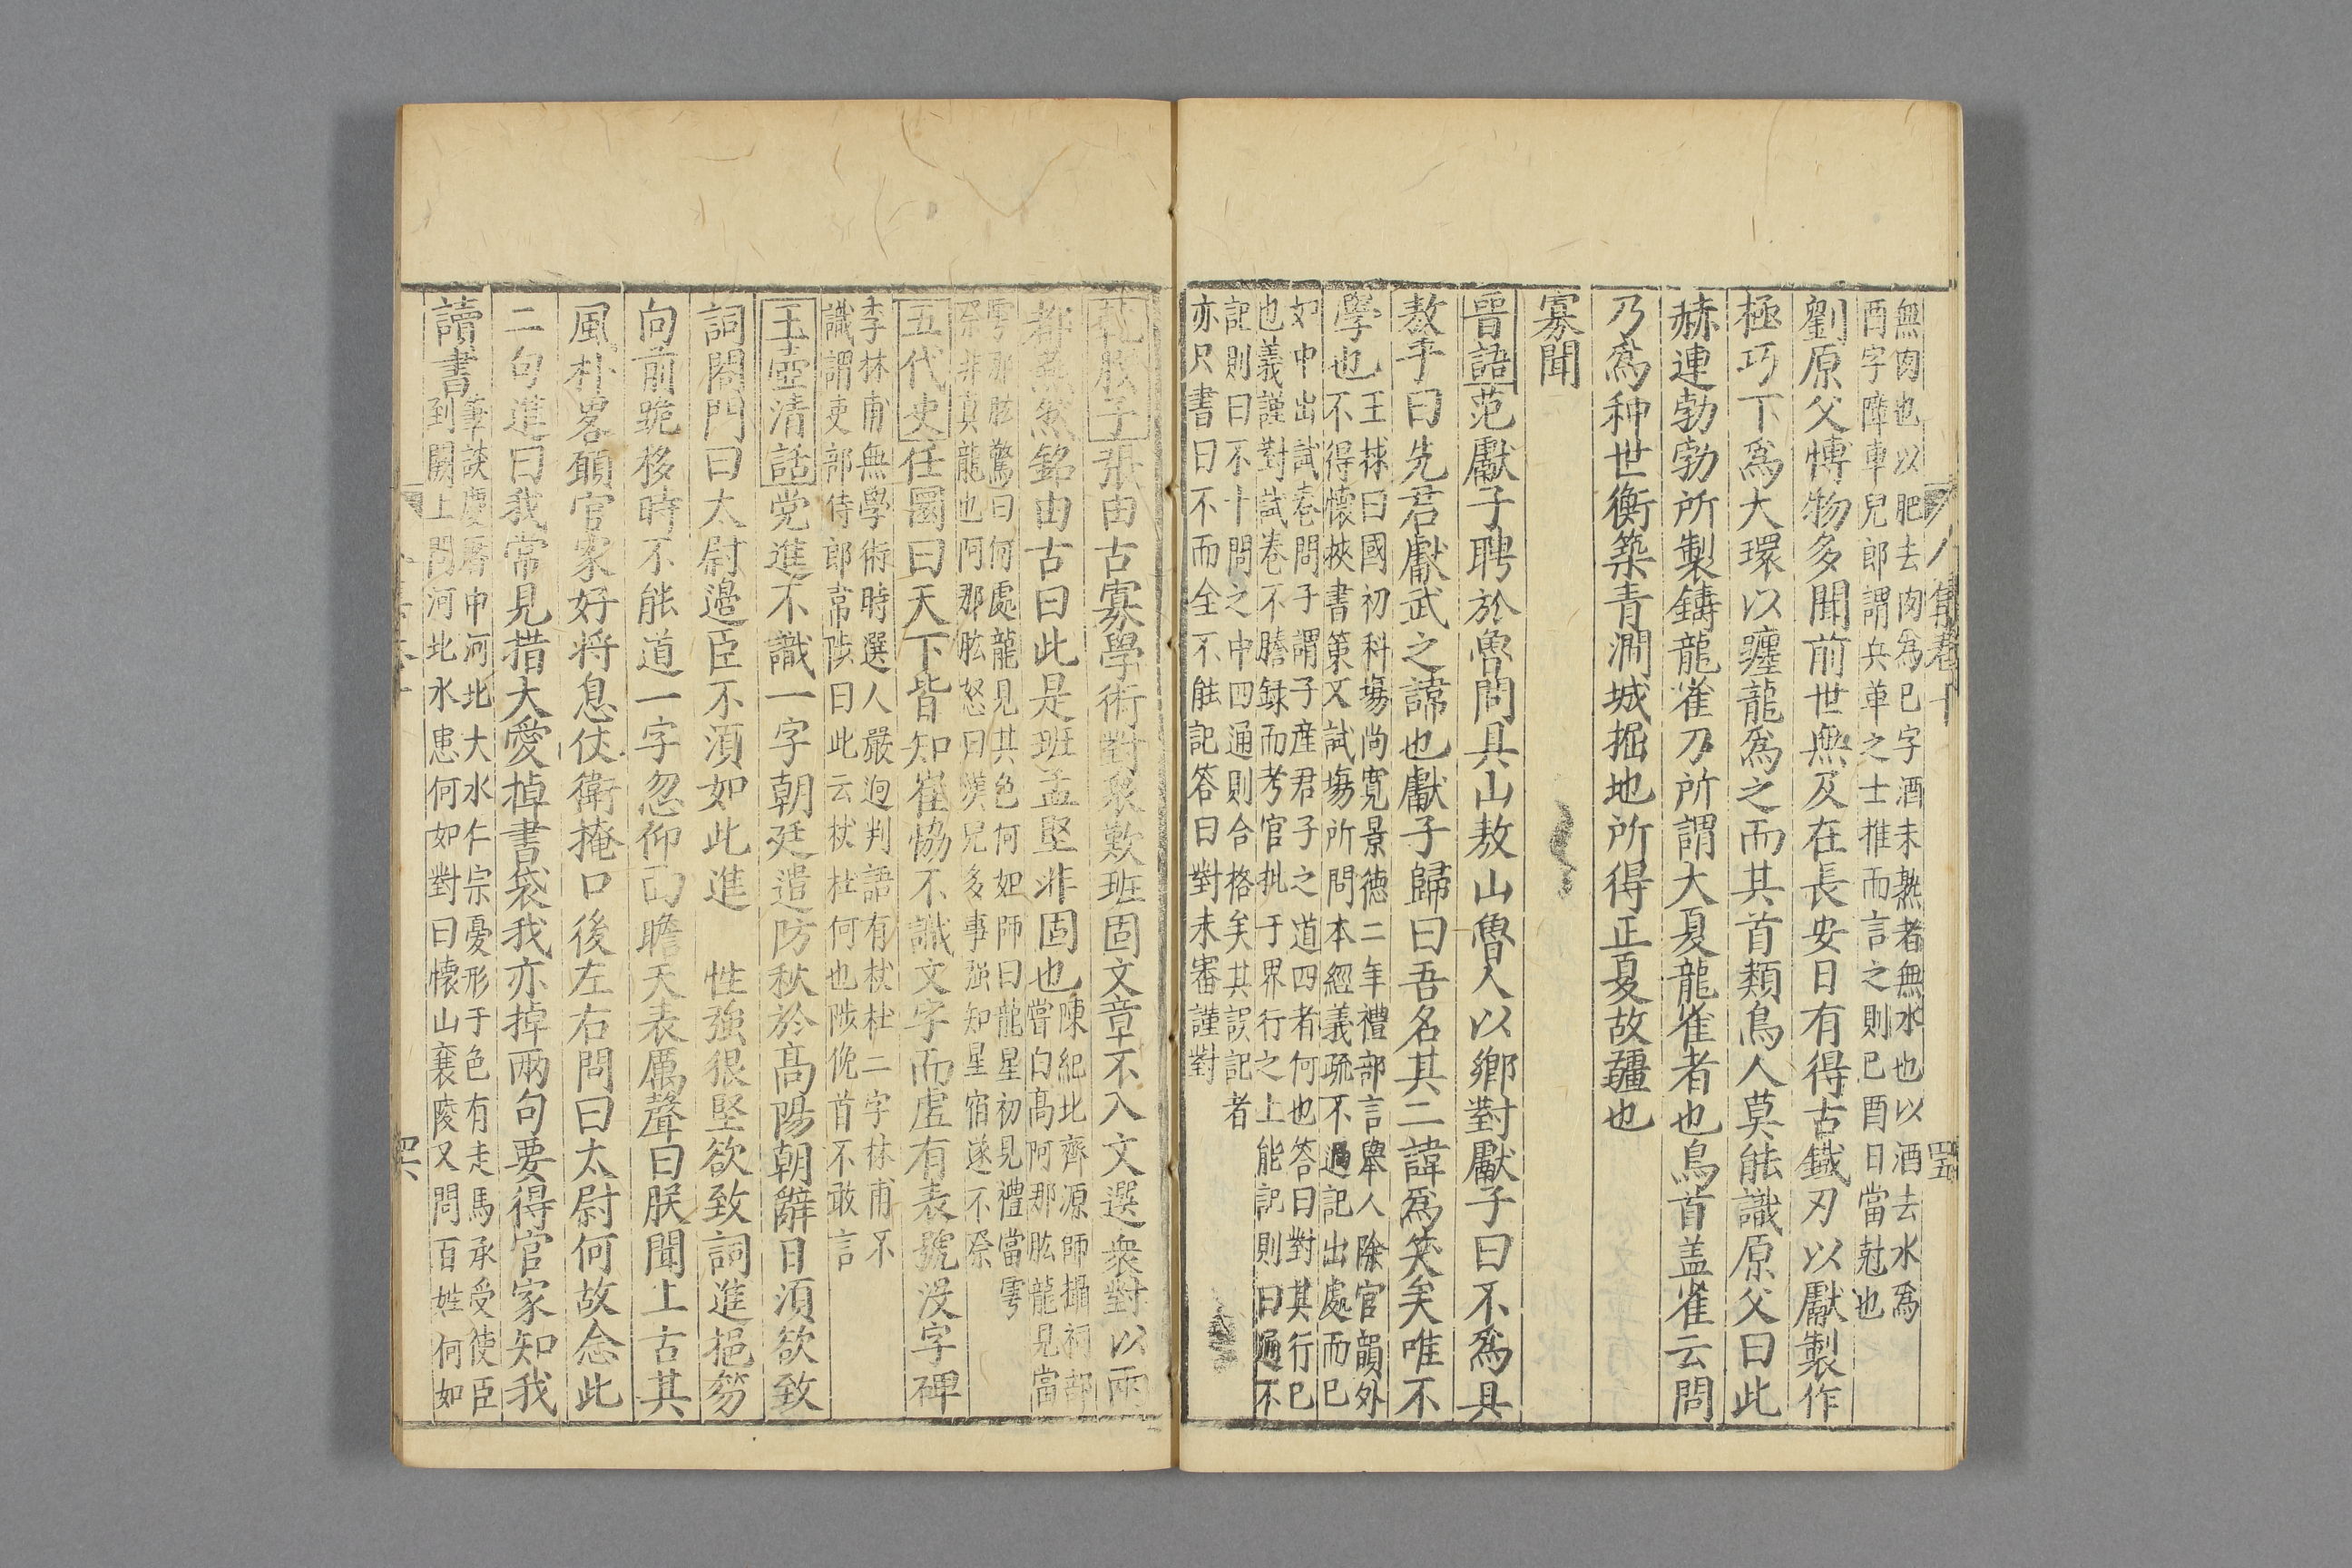 集卷十
四五
無肉也以肥去肉爲己字酒未熟者無水也以酒去水爲
酉字障車兒郎謂兵革之士推而言之則己酉日當尅也
劉原父愽物多聞前世無及在長安日有得古鐵刃以獻製作
極巧下爲大環以纏龍爲之而其首類鳥人莫能識原父曰此
赫連勃勃所製鑄龍雀刀所謂大夏龍雀者也鳥首盖雀云問
乃爲种世衡築青澗城掘地所得正夏故疆也
寡聞
晉語范獻子聘於魯問具山敖山魯人以鄉對獻子曰不爲具
敖乎曰先君獻武之諱也獻子歸曰吾名其二諱爲笑矣唯不
學也
王栐曰國初科塲尚寬景德二年禮部言舉人除官韻外
不得懷挾書策又試塲所問本經義疏不過記出處而已
如中出試卷問子謂子産君子之道四者何也答曰對其行己
也義謹對試卷不謄録而考官批于界行之上能記則曰通不
記則曰不十問之中四通則合格矣其誤記者
亦只書曰不而全不能記答曰對未審謹對
乾𦠆子張由古寡學術對衆歎班固文章不入文選衆對以兩
都燕然銘由古曰此是班孟堅非固也
陳紀北齊源師攝祠部
嘗白高阿那肱龍見當
雩那肱驚曰何處龍見其色何如師曰龍星初見禮當雩
祭非真龍也阿那肱怒曰漢兒多事强知星宿遂不祭
五代史任圜曰天下皆知崔協不識文字而虚有表號没字碑
李林甫無學術時選人嚴迥判語有杕杜二字林甫不
識謂吏部侍郎韋陟曰此云杕杜何也陟俛首不敢言
玉壺清話党進不識一字朝廷遣防秋於高陽朝辭日須欲致
詞閤門曰太尉邉臣不須如此進 性強很堅欲致詞進挹笏
向前跪移時不能道一字忽仰面瞻天表厲聲曰朕聞上古其
風朴畧願官家好將息仗衛掩口後左右問曰太尉何故念此
二句進曰我常見措大愛掉書袋我亦掉兩句要得官家知我
讀書
筆談慶曆中河北大水仁宗憂形于色有走馬承受使臣
到闕上問河北水患何如對曰懷山襄陵又問百姓何如